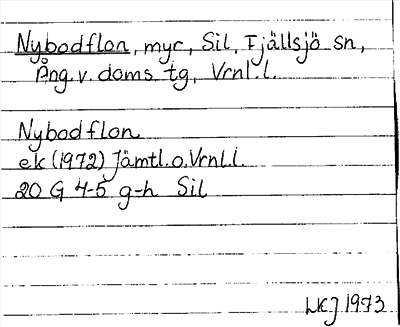 Nybodflon, myr, Sil, Fjällsjö sn,
Ång. v. doms. tg, Vrnl. l.
Nybodflon
ek (1972) Jämtl. o. Vrnl. l.
20 G 4-5 g-h Sil
LKJ 1973